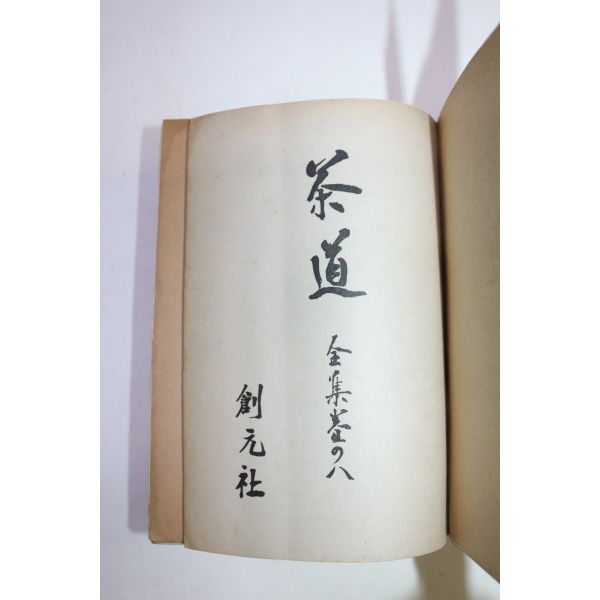 茶道
全集巻の八
創元社